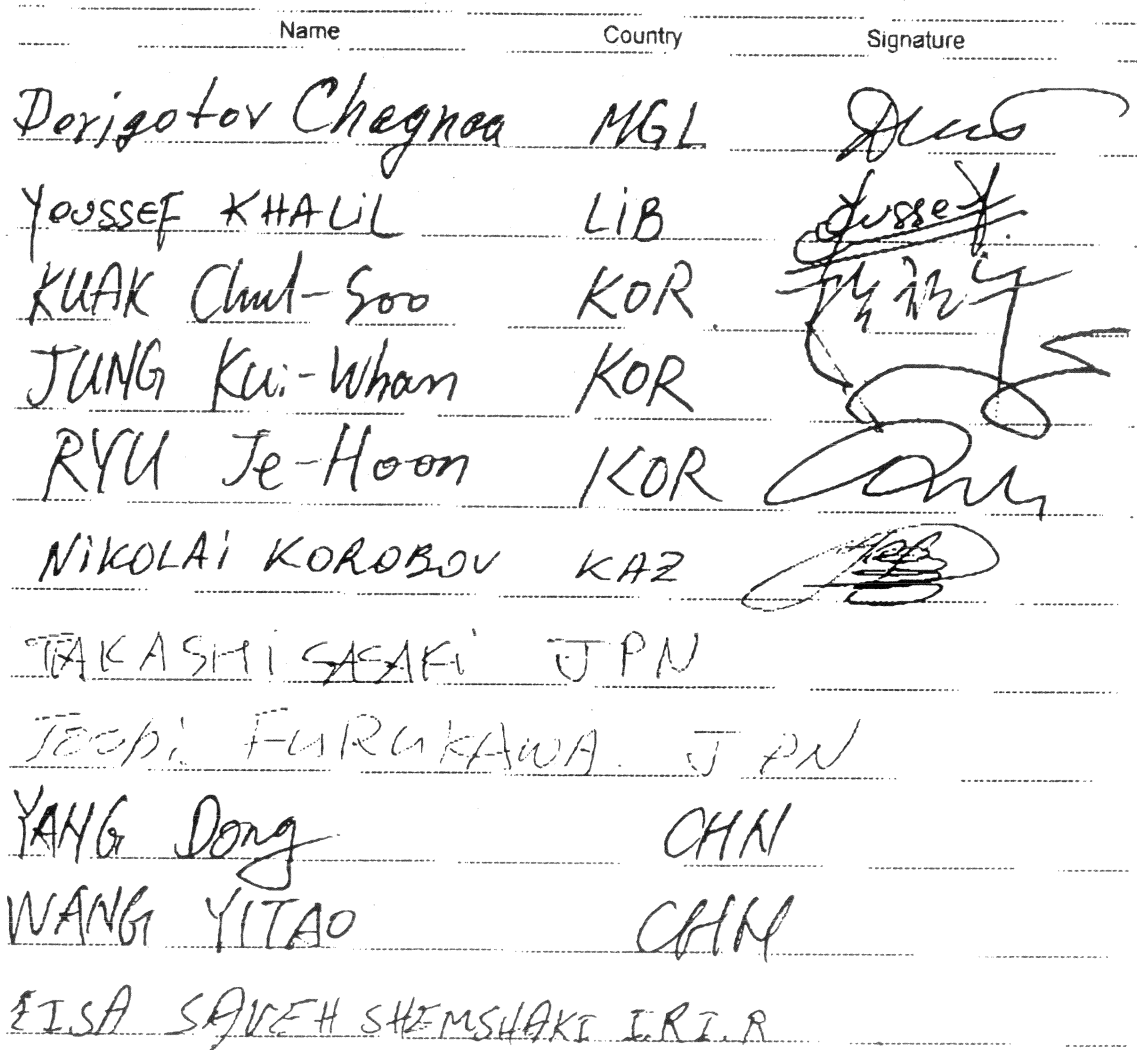 Name Country Signature
Dorigotov Chagnaa MGL
YOUSSEF KHALIL LIB Yussef
KUAK Chul-Soo KOR 곽철수
JUNG Kui-Whan KOR
RYU Je-Hoon KOR
NIKOLAI KOROBOV KAZ
TAKASHI SASAKI JPN
FURUKAWA JPN
YANG Dong CHN
WANG YITAO CHN
EISA SAVEH SHEMSHAKI I.R.I.R